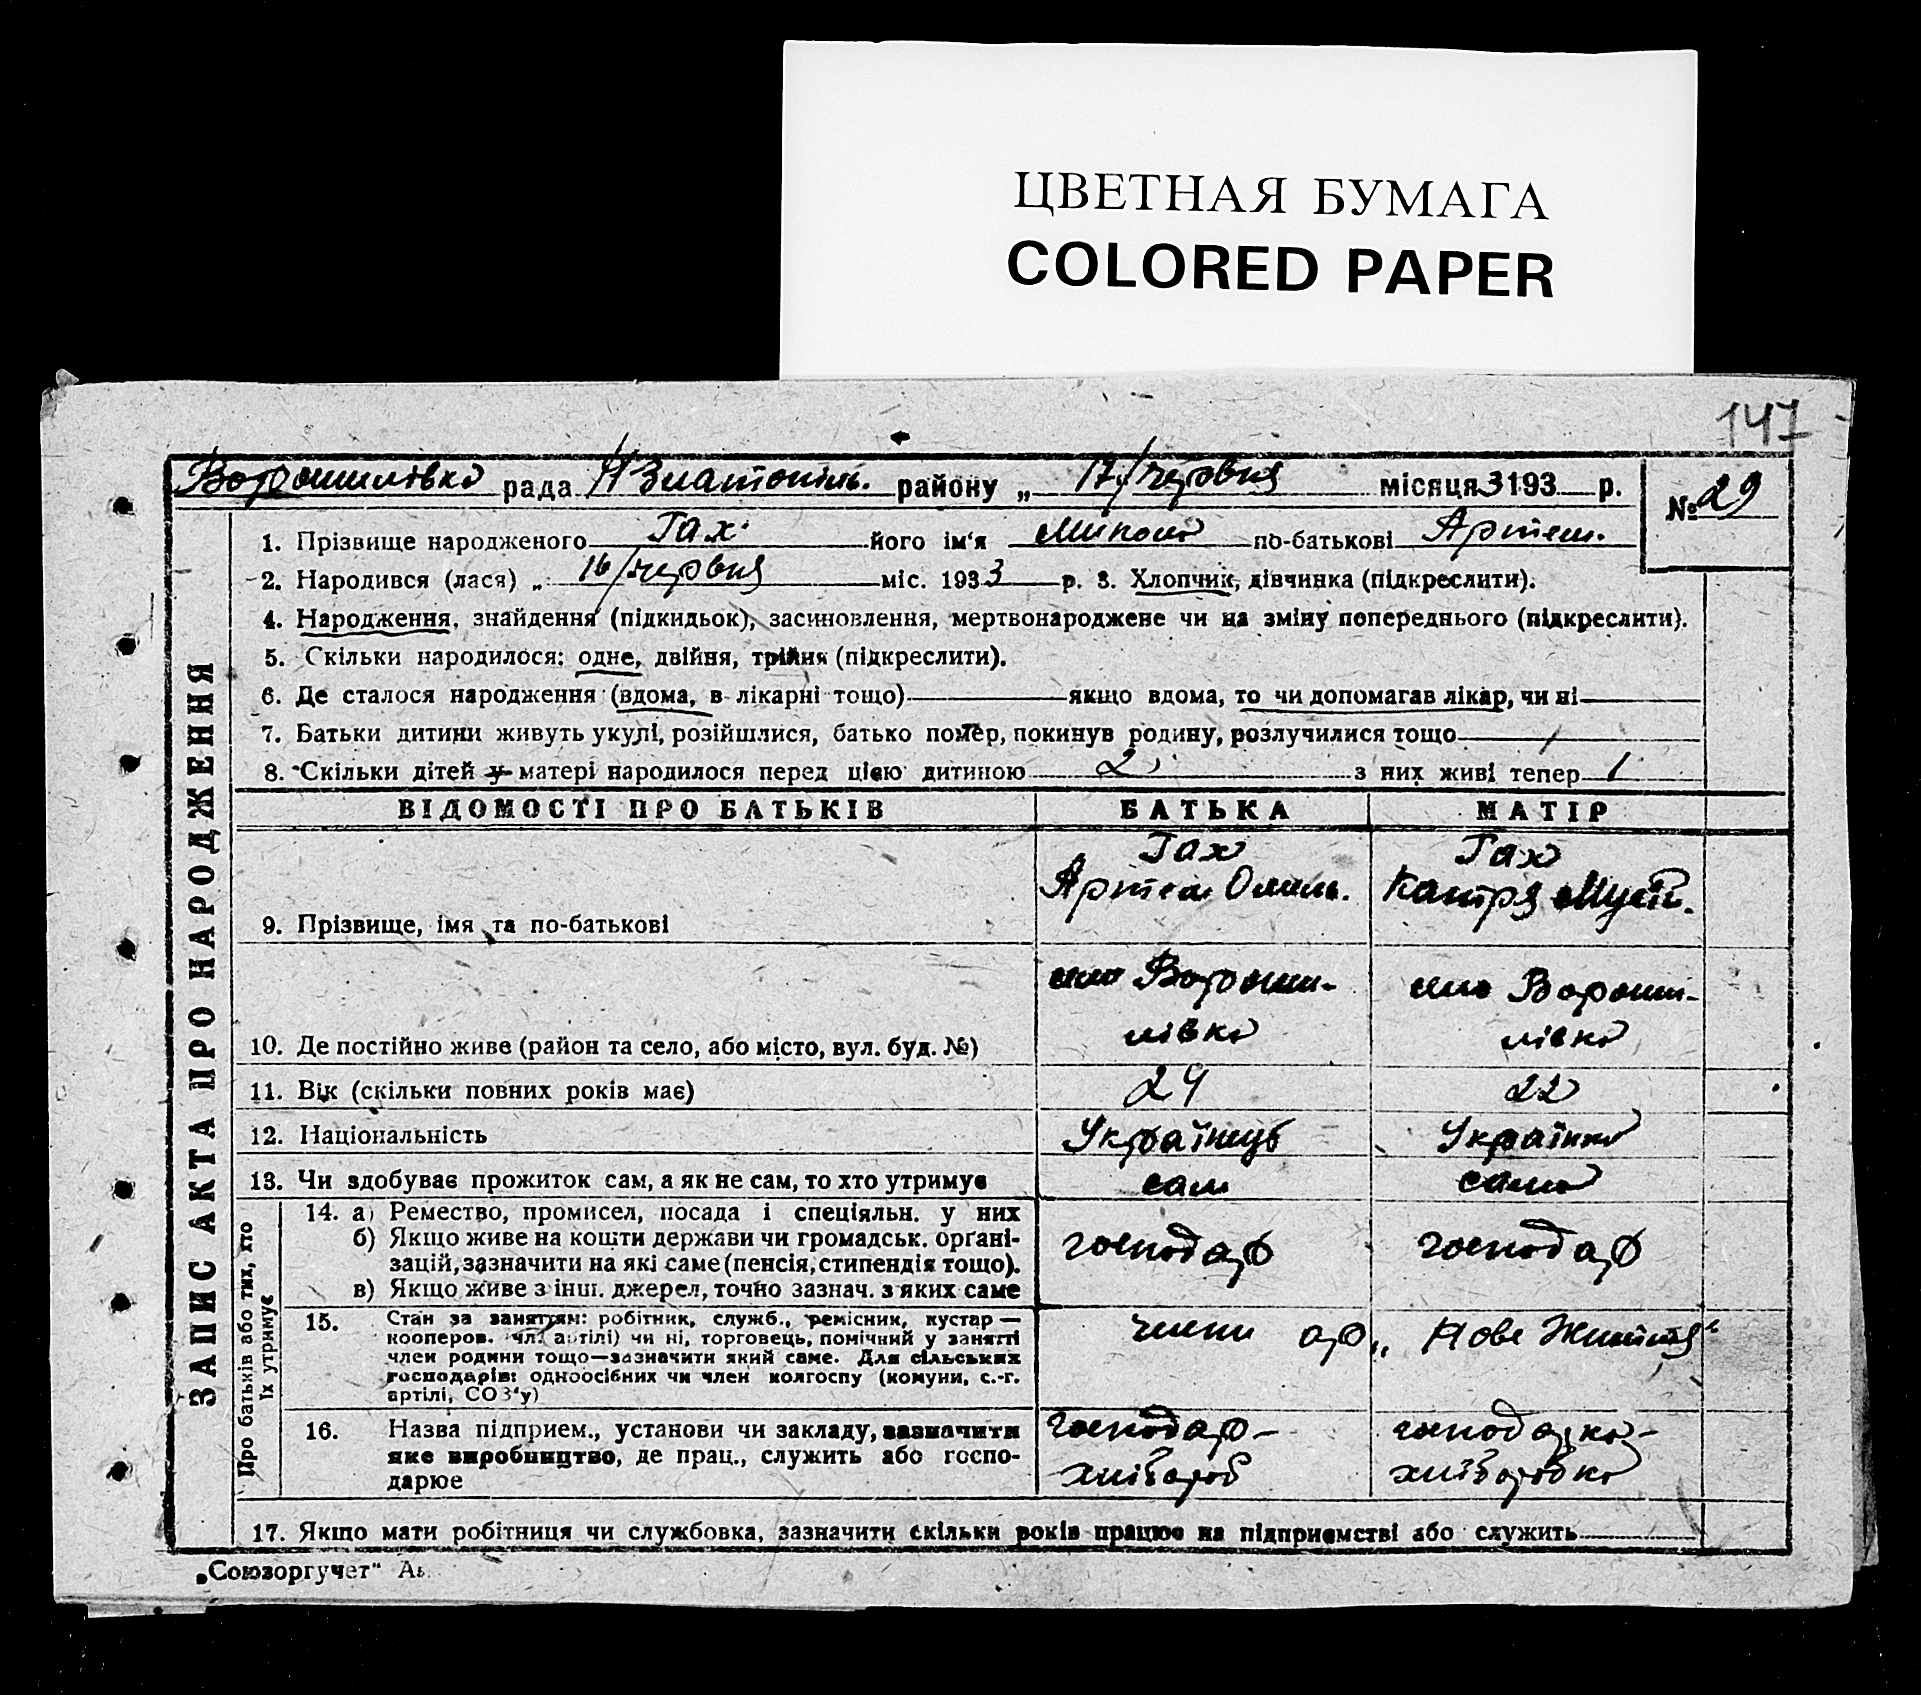 ЦВЕТНАЯ БУМАГА
COLORED PAPER
147
Ворошилівка рада Н Златопіль. району „ 17/червня місяця 3 193 р. № 29
1. Прізвище народженого Гах його ім'я Микола по-батькові Артем.
2. Народився (лася) „ 16/червня міс. 193 3 р. 3. Хлопчик, дівчинка (підкреслити).
4. Народження, знайдення (підкидьок), засиновлення, мертвонароджене чи на зміну попереднього (підкреслити).
5. Скільки народилося: одне, двійня, трійня (підкреслити).
6. Де сталося народження (вдома, в лікарні тощо) якщо вдома, то чи допомагав лікар, чи ні
7. Батьки дитини живуть укупі, розійшлися, батько помер, покинув родину, розлучилися тощо
8. Скільки дітей у матері народилося перед цією дитиною 2 з них живі тепер 1
ВІДОМОСТІ ПРО БАТЬКІВ БАТЬКА МАТІР
Гах Гах
Артем Омель. Катря Мусій.
9. Прізвище, імя та по-батькові
село Вороши- село Вороши-
лівка лівка
10. Де постійно живе (район та село, або місто, вул. буд. №)
11. Вік (скільки повних років має) 24 22
12. Національність Українець Українка
13. Чи здобуває прожиток сам, а як не сам, то хто утримує сам сама
14. а) Ремество, промисел, посада і спеціяльн. у них
б) Якщо живе на кошти держави чи громадськ. органі-
зацій, зазначити на які саме (пенсія, стипендія тощо).
в) Якщо живе з інш. джерел, точно зазнач. з яких саме
господар господар
15. Стан за занятям: робітник, служб., ремісник, кустар —
кооперов. чл. артілі) чи ні, торговець, помічний у занятті
член родини тощо—зазначити який саме. Для сільських
господарів: одноосібних чи член колгоспу (комуни, с.-г.
артілі, СОЗ'у)
члени ар. „ Нове Життя"
16. Назва підприєм., установи чи закладу, зазначити
яке виробництво, де прац., служить або госпо-
дарює
господар- господарка-
хлібороб хліборобка
17. Якщо мати робітниця чи службовка, зазначити скільки років працює на підприємстві або служить
ЗАПИС АКТА ПРО НАРОДЖЕННЯ
Про батьків або тих, хто
їх утримує
„Союзоргучет"